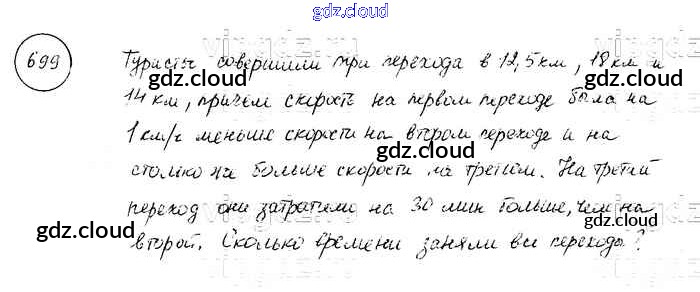 gdz.cloud
699 Туристы совершили три перехода в 12,5 км, 18 км и
gdz.cloud gdz.cloud
14 км, причём скорость на первом переходе была на
1 км/ч меньше скорости на втором переходе и на
gdz.cloud
столько же больше скорости на третьем. На третий
gdz.cloud
переход они затратили на 30 мин больше, чем на
gdz.cloud gdz.cloud
второй. Сколько времени заняли все переходы?
gdz.cloud